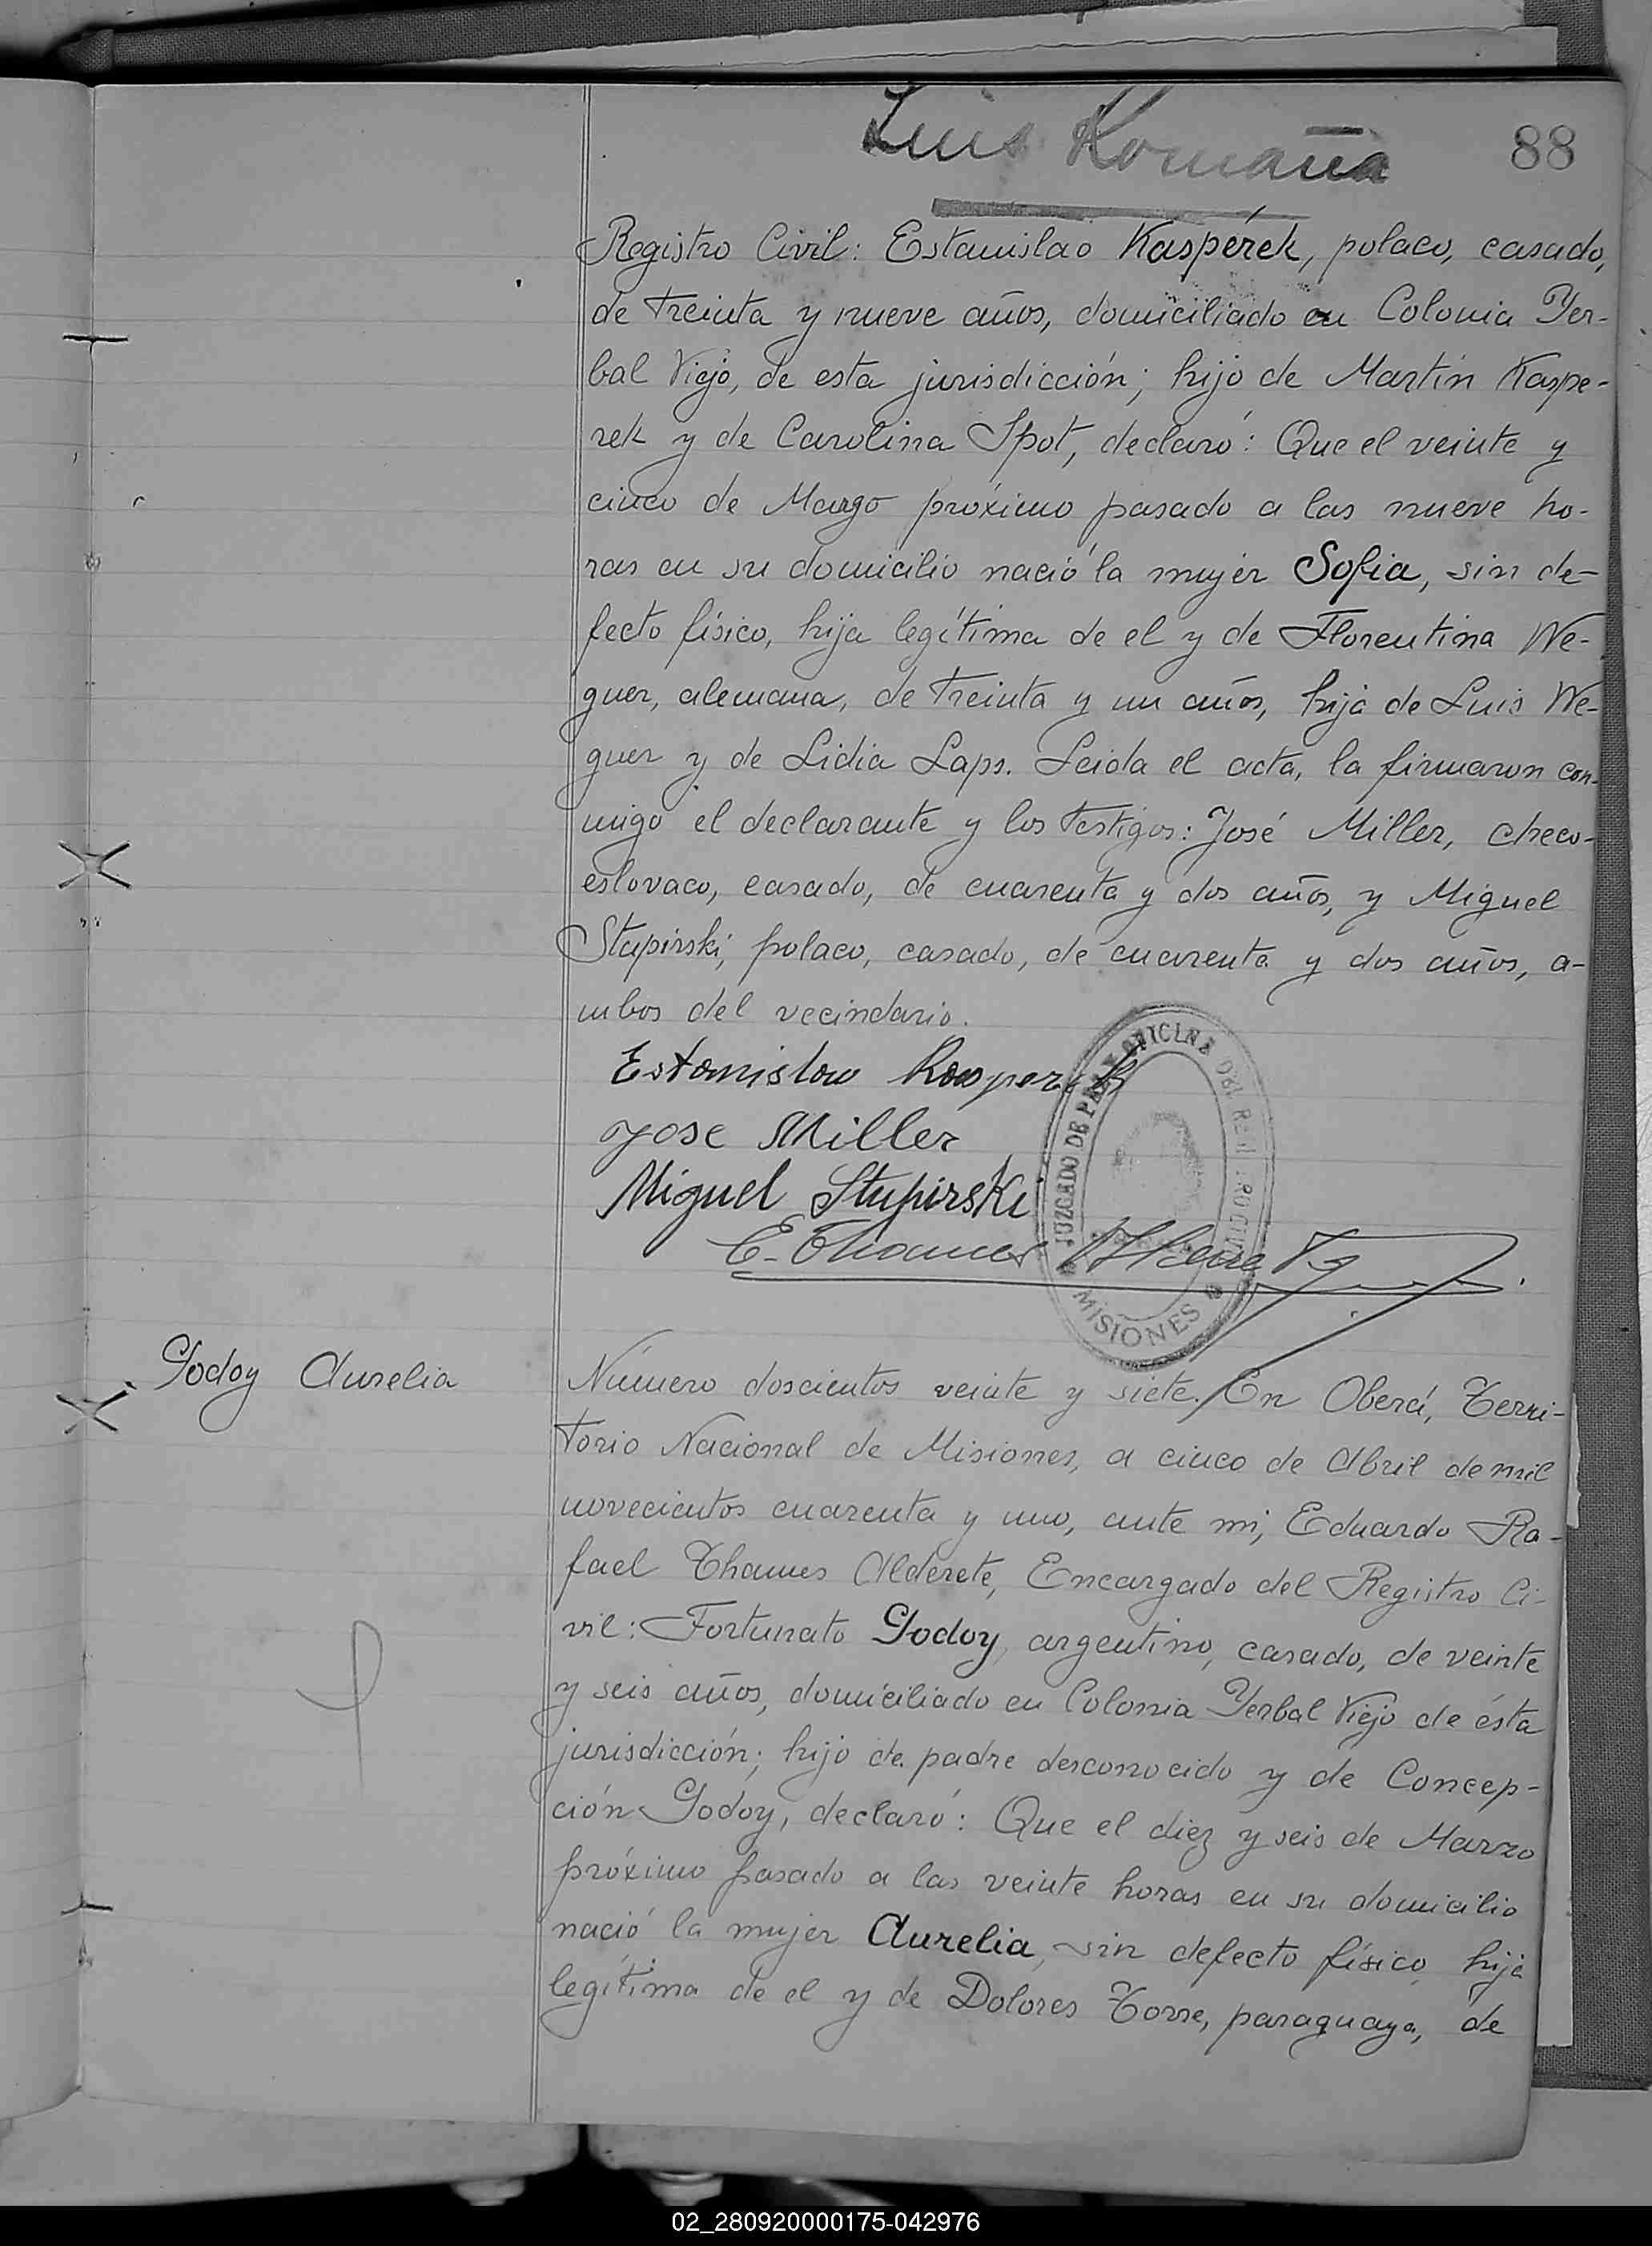 Luis Romaña
88
Registro Civil: Estanislao Kaspérek, polaco, casado,
de treinta y nueve años, domiciliado en Colonia Yer-
bal Viejo, de esta jurisdicción; hijo de Martín Kaspe-
rek y de Carolina Spot, declaró: Que el veinte y
cinco de Marzo próximo pasado a las nueve ho-
ras en su domicilio nació la mujer Sofia, sin de-
fecto físico, hija legítima de el y de Florentina We-
guer, alemana, de treinta y un años, hija de Luis We-
guer y de Lidia Laps. Leida el acta, la firmaron con-
migo el declarante y los testigos: José Miller, checo-
eslovaco, casado, de cuarenta y dos años, y Miguel
Stupirski, polaco, casado, de cuarenta y dos años, a-
mbos del vecindario.
Estanislaw Kasperek
Jose Miller
Miguel Stupirski
E. Thames Alderete
JUZGADO DE PAZ Y OFICINA DEL REGISTRO CIVIL
MISIONES
Godoy Aurelia
Número doscientos veinte y siete. En Oberá, Terri-
torio Nacional de Misiones, a cinco de Abril de mil
novecientos cuarenta y uno, ante mi, Eduardo Ra-
fael Thames Alderete, Encargado del Registro Ci-
vil: Fortunato Godoy, argentino, casado, de veinte
y seis años, domiciliado en Colonia Yerbal Viejo de ésta
jurisdicción; hijo de padre desconocido y de Concep-
ción Godoy, declaró: Que el diez y seis de Marzo
próximo pasado a las veinte horas en su domicilio
nació la mujer Aurelia, sin defecto físico, hija
legítima de el y de Dolores Torre, paraguaya, de
02_280920000175-042976